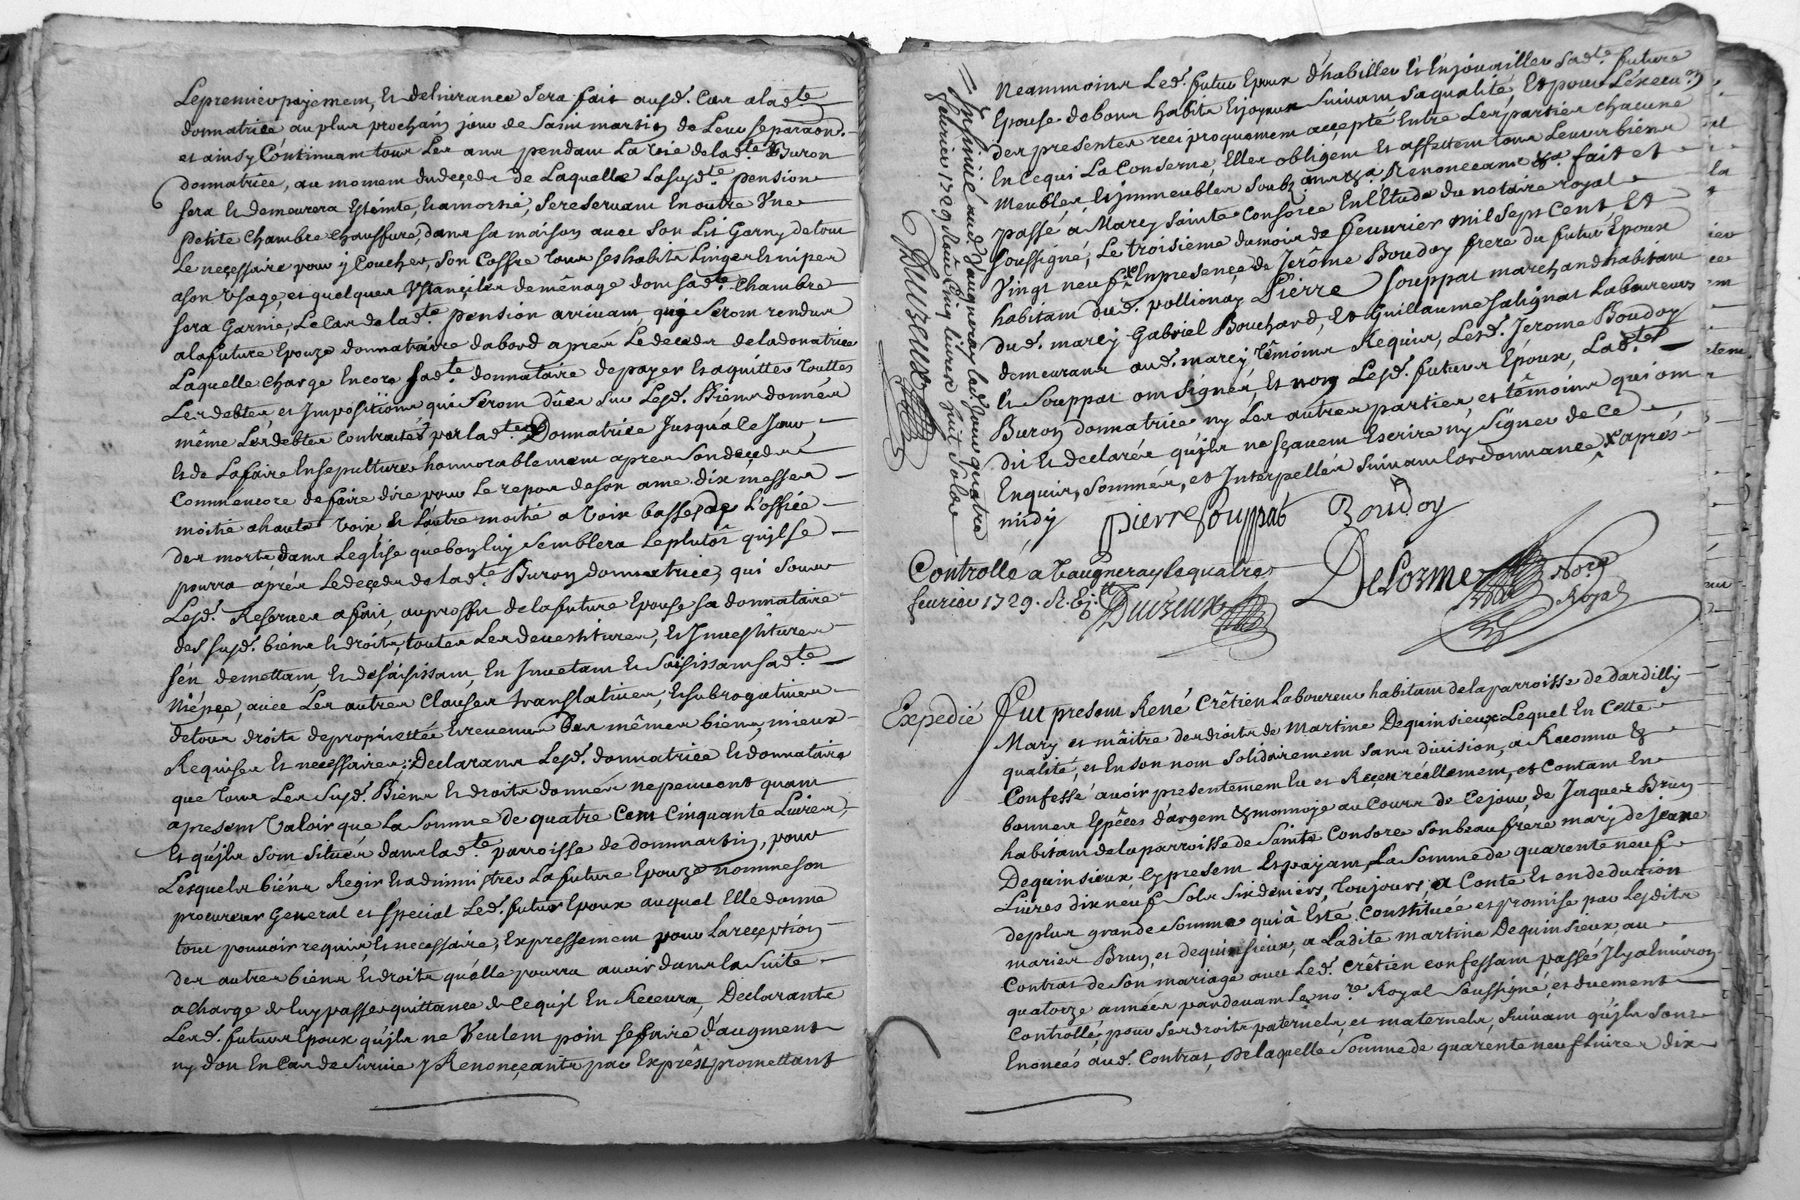 Le premier payement, et delivrance sera fait aud. cas a lad.te
donnatrice au plus prochain jour de saint martin de leur separaon.
et ainsy continuant tous les ans pendant la vie de lad.te Buron
donnatrice, au moment du deçeds de laquelle lasusd.te pension
sera et demeurera esteinte, et amortie, se reservant en outre une
petite chambre chauffure, dans sa maison avec son lit garny de tout
le neçessaire pour y coucher, son coffre tous ses habits linges et nipes
a son usage, et quelques ustançiles de mênage dont sad.te chambre
sera garnie, le cas de lad.te pension arrivant, qui seront rendus
a la future Epouze donnataire dabord aprés le deceds de la donatrice
Laquelle charge encore sad.te donnataire de payer et aquitter touttes
les debtes et impositions qui seront dües sur lesd. Biens donnés
même les debtes contractés par lad.te Donnatrice jusquá ce jour,
et de la faire ensepulturer honnorablement apres son deçeds
comm'encore de faire dire pour le repos de son ame dix messes
moitié a haute voix et l'autre moitié a voix basse de l'office
des morts dans leglise que bon luy semblera le plutôt qu'il se
pourra aprés le deçeds de lad.te Buron donnatrice, qui sous
lesd. Reserves a fait, au proffit de la future Epouse sa donnataire
des susd. biens et droits, toutes les devestitures, et investitures
s'en demettant, et desaisissant, en invetant et saisissant sad.te
Niépçe, avec les autres clauses translatives, et subrogatives
de tous droits de proprietté et revenus des mêmes biens, mieux
Requises et necessaires; Declarans lesd. donnatrice et donnataire
que tous les susd. Biens et droits donnés ne peuvent quant
a present valoir que la somme de quatre cent cinquante Livres,
Et qu'ils sont situés dans lad.te parroisse de dommartin, pour
lesquels biens Regir et administrer la future Epouze nomme son
procureur General et special led. futur Epoux auquel Elle donne
tout pouvoir requis, et necessaire, Expressement pour la reçeption
des autres biens et droits qu'elle pourra avoir dans la suite
a charge de luy passer quittance de ce qu'il en Recevra, Declarants
Lesd. futurs Epoux qu'ils ne veulent point se faire d'augment
ny don en cas de survie y Renonçeants par Exprês, promettant
Neammoins Led. futur Epoux d'habiller et Enjoyailler sad.te future
Epouse de bons habits et joyaux suivant sa qualité Et pour L'éxecu.on
des presentes reciproquement acçepté Entre les parties chacune
En ce qui la conserne, Elles obligent et affettent tous leurs biens
Meubles, et immeubles soubz ans &a Renoncçans &a fait et
passé a Marcy Sainte Consorce En l'Etude du notaire royal
soussigné, Le troisieme du mois de feuvrier mil sept cent Et
vingt neuf x En presençe de Jerôme Boudoy frere du futur Epoux
habitant dud. pollionay Pierre Souppat marchand habitant
dud. marcy Gabriel Bouchard, Et Guillaume Salignat Laboureurs
demeurans aud. marcy têmoins Requis, Lesd. Jerome Boudoy
et Souppat ont signés, Et non Lesd. futurs Epoux, Lad.te
Buron donnatrice ny les autres parties, et têmoins qui ont
dit et declarés qu'ils ne sçavent Escrire ny signer de ce
Enquis, sommés, et interpellés suivant lordonnance x aprés
midy
pierre Souppat Boudoy
Controllé a Vaugneray le quatre
fevrier 1729. R. Duvzeux
DeLorme No.re Royal
Insinué aud. Vaugneray led. Jour quatre
fevrier 1729
Expedié Fut present René Crêtien Laboureur habitant de la parroisse de dardilly
Mary et mâitre des droits de Martine Dequinsieux, Lequel En cette
qualité, et En son nom solidairement sans division, a Reconnu &
Confessé avoir presentement Eu et Reçeu réellement, et contant En
bonnes Espêces d'argent & monnoye au cours de ce jour, de Jacques Brun
habitant de la parroisse de Sainte Consore son beau frere mary de Jeane
Dequinsieux cy present Et payant, La somme de quarente neuf
Livres dix neuf sols six deniers, toujours, a conte Et en deduction
de plus grande somme qui a Esté constituée et promise par lesdits
mariés Brun, et dequinsieux, a Ladite Martine Dequinsieux, au
Contrat de son mariage avec Led. Crêtien confessant passé Il y a Environ
quatorze années pardevant le no.re Royal soussigné, et duement
Controllé, pour ses droits paternels, et maternels, suivant qu'ils sont
Enoncés aud. Contrat, De laquelle somme de quarente neuf Livres dix